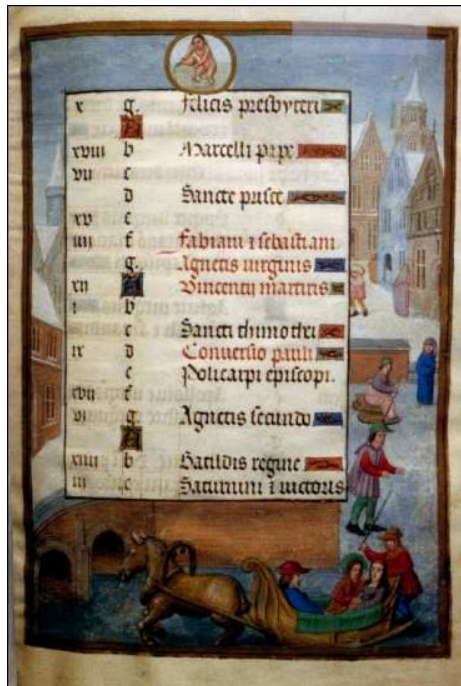 x g. Felicis presbyteri
A
xviii b Marcelli pape
vii
d Sancte prisce
xv e
iiii f Fabiani ⁊ sebastiani
g. Agnetis virginis
xii A Vincentij martiris
i b
c Sancti thimothei
ix d Conuersio pauli
e Policarpi episcopi.
xvii f
vi g. Agnetis secundo
A
xiiii b Batildis regine
iii c Saturnini ⁊ victoris